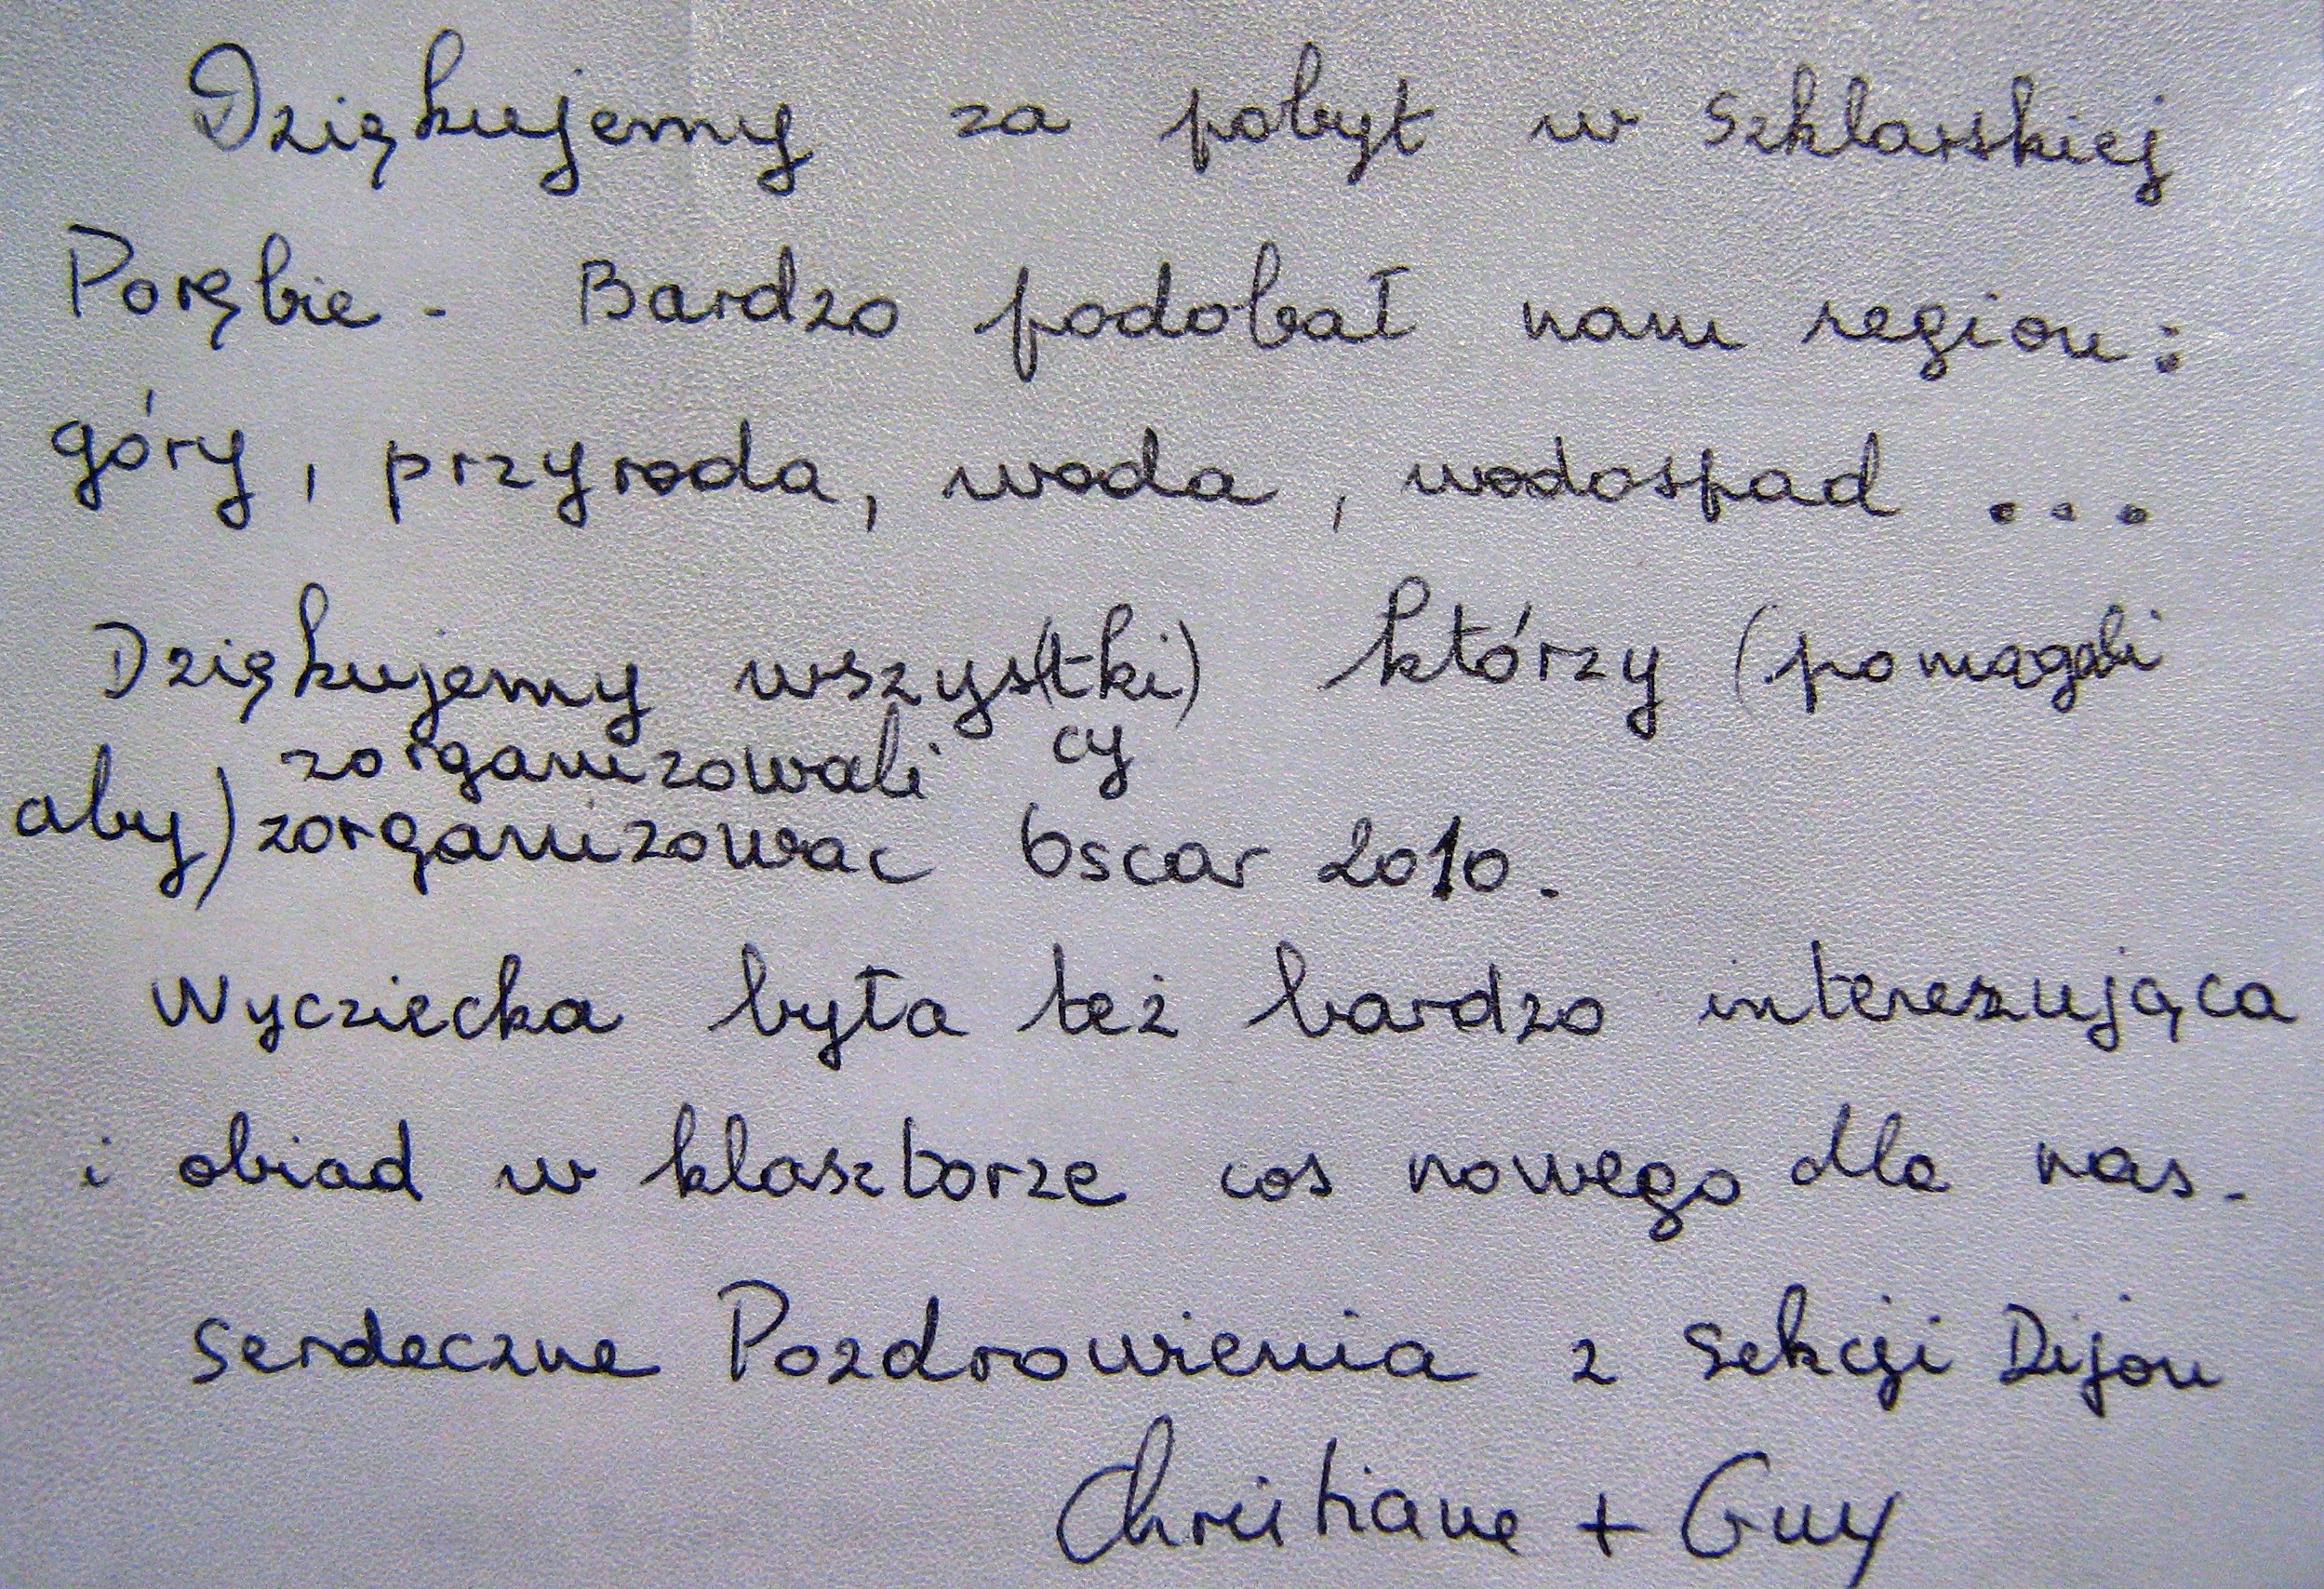 Dziękujemy za pobyt w Szklarskiej
Porębie. Bardzo podobał nam region:
góry, przyroda, woda, wodospad ...
Dziękujemy wszys(tki) którzy (pomagali
zorganizowali cy
aby) zorganizowac Oscar 2010.
Wycziecka była też bardzo interezująca
i obiad w klasztorze cos nowego dla nas.
Serdeczne Pozdrowienia z sekcji Dijon
Christiane + Guy